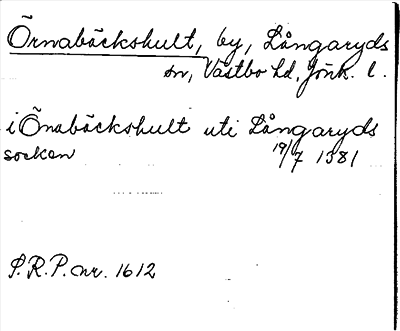 Örnabäckshult, by, Långaryds
sn, Västbo hd, Jönk. l.
i Önabäckshult uti Långaryds
socken 19/7 1381
S.R.P. nr. 1612